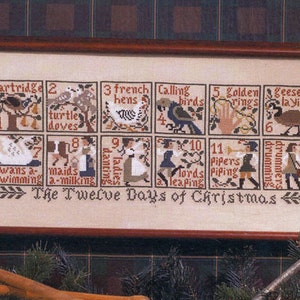 artridge
2
turtle
doves
3 french
hens
Calling
birds
4
5 golden
rings
geese
layin
6
wans a-
wimming
8
maids
a-milking
9
ladies
dancing
10
lords
leaping
11
pipers
piping
drummers
The Twelve Days of Christmas